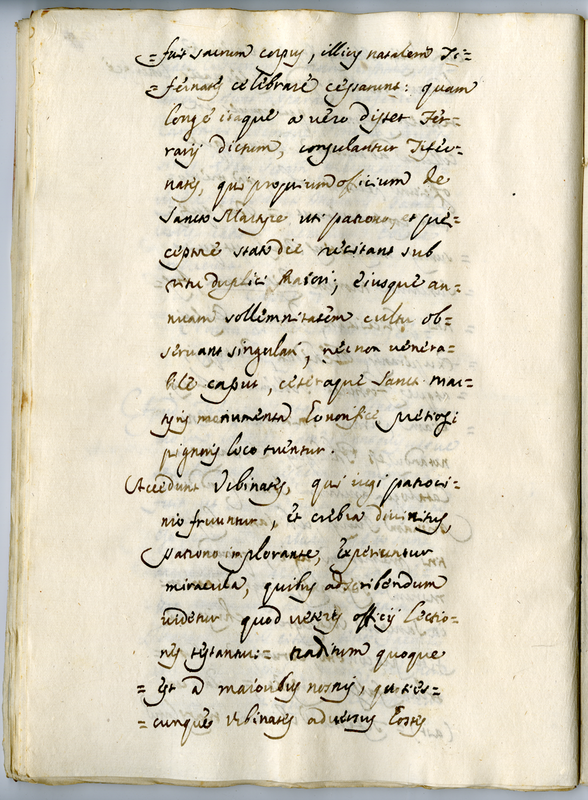 =fuit sacrum corpus, illius natalem Ti=
=fernates celebrare cessarunt: quam
longe itaque a vero distet Fer=
rarij dictum, consulantur Tifer=
nates, qui proprium officium de
Sancto Martyre uti patrono, et
stato die recitant sub
ritu duplici maiori, eiusque an=
nuam sollemnitatem cultu ob=
servant singulari, necnon venera=
bile caput, ceteraque Sancti mar=
tyris monumenta honorifice pretiosi
pignoris loco tuentur.
Accedunt Urbinates, qui iugi patroci=
nio fruuntur, et crebra divinitus,
patrono implorante, experiuntur
miracula, quibus adscribendum
videtur quod veteris officij Lectio=
nes testantur:= traditum quoque
=est a maioribus nostris, quoties=
=cunque Urbinates adversus hostes